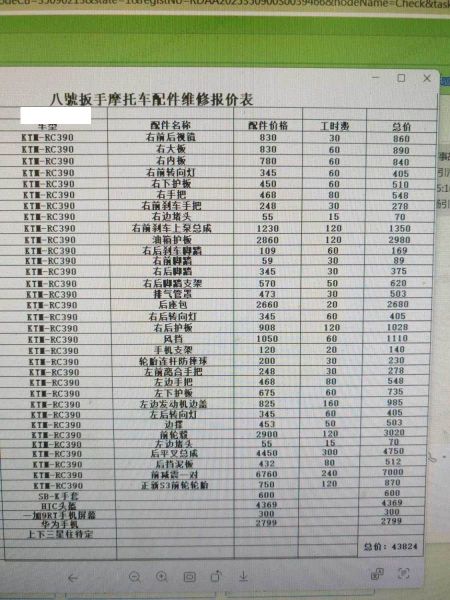 odeCB=33090213&state=1&registNo=RDAA2025350900S0039466&nodeName=Check&task
八號扳手摩托车配件维修报价表
车型 配件名称 配件价格 工时费 总价
KTM-RC390 右前后视镜 830 30 860
KTM-RC390 右大板 830 60 890
KTM-RC390 右内板 780 60 840
KTM-RC390 右前转向灯 345 60 405
KTM-RC390 右下护板 450 60 510
KTM-RC390 右手把 468 80 548
KTM-RC390 右前刹车手把 248 30 278
KTM-RC390 右边堵头 55 15 70
KTM-RC390 右前刹车上泵总成 1230 120 1350
KTM-RC390 油箱护板 2860 120 2980
KTM-RC390 右后刹车脚踏 109 60 169
KTM-RC390 右前脚踏 59 30 89
KTM-RC390 右后脚踏 345 30 375
KTM-RC390 右后脚踏支架 570 50 620
KTM-RC390 排气管罩 473 30 503
KTM-RC390 后座包 2660 20 2680
KTM-RC390 右后转向灯 345 60 405
KTM-RC390 右后护板 908 120 1028
KTM-RC390 风挡 1050 60 1110
KTM-RC390 手机支架 120 20 140
KTM-RC390 轮胎连杆防摔球 200 30 230
KTM-RC390 左前离合手把 248 30 278
KTM-RC390 左边手把 468 80 548
KTM-RC390 左下护板 675 60 735
KTM-RC390 左边发动机边盖 825 160 985
KTM-RC390 左后转向灯 345 60 405
KTM-RC390 边撑 453 50 503
KTM-RC390 前轮毂 2900 120 3020
KTM-RC390 左边堵头 55 15 70
KTM-RC390 后平叉总成 4450 300 4750
KTM-RC390 后挡泥板 432 80 512
KTM-RC390 前减震一对 6760 240 7000
KTM-RC390 正新S3前轮轮胎 750 120 870
SB-K手套 600 600
HJC头盔 4369 4369
一加9RT手机屏幕 300 300
华为手机 2799 2799
上下三星柱待定
总价：43824